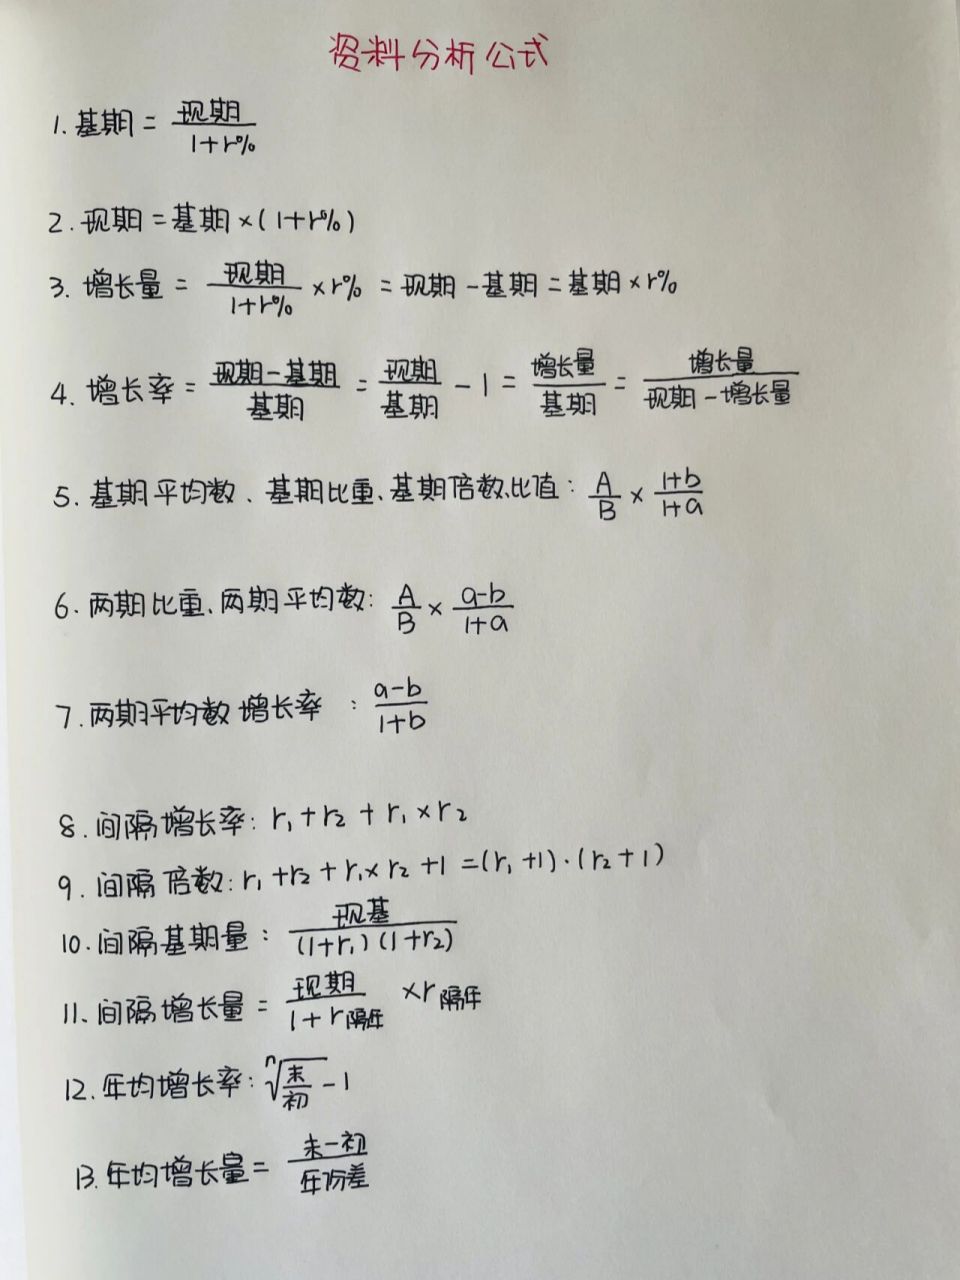 资料分析公式
1. 基期 = 现期/(1+r%)
2. 现期 = 基期 × (1+r%)
3. 增长量 = 现期/(1+r%) × r% = 现期 - 基期 = 基期 × r%
4. 增长率 = (现期-基期)/基期 = 现期/基期 - 1 = 增长量/基期 = 增长量/(现期-增长量)
5. 基期平均数、基期比重、基期倍数、比值: A/B × (1+b)/(1+a)
6. 两期比重、两期平均数: A/B × (a-b)/(1+a)
7. 两期平均数增长率 : (a-b)/(1+b)
8. 间隔增长率: r₁+r₂+r₁×r₂
9. 间隔倍数: r₁+r₂+r₁×r₂+1=(r₁+1)·(r₂+1)
10. 间隔基期量: 现基/(1+r₁)(1+r₂)
11、间隔增长量 = 现期/(1+r隔年) ×r隔年
12. 年均增长率: ⁿ√(末/初) - 1
13. 年均增长量 = (末-初)/年份差